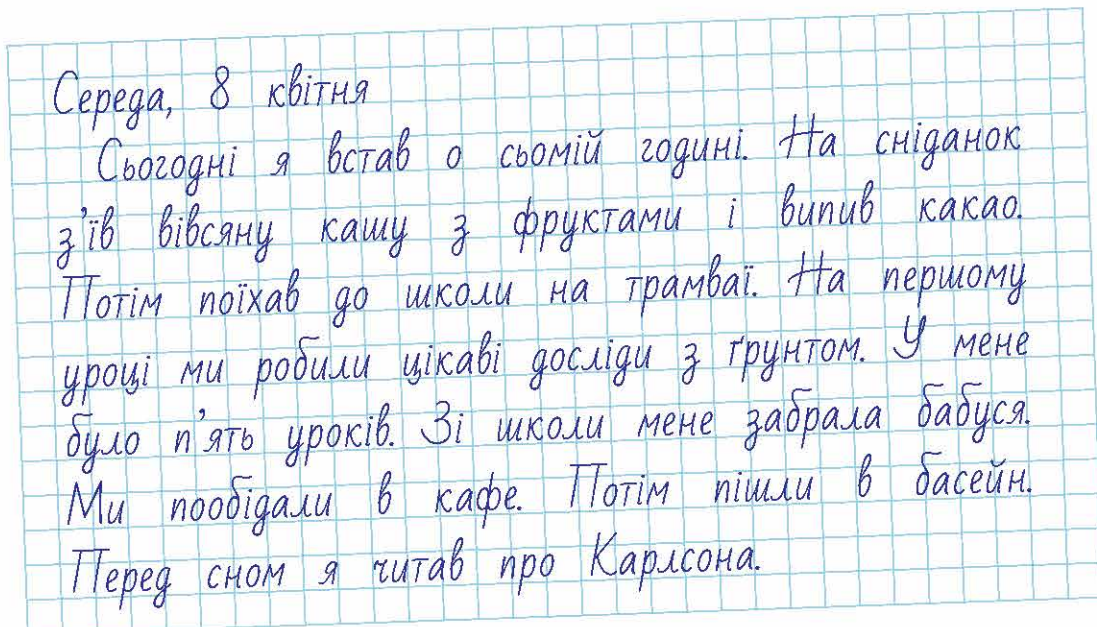 Середа, 8 квітня
Сьогодні я встав о сьомій годині. На сніданок
з'їв вівсяну кашу з фруктами і випив какао.
Потім поїхав до школи на трамваї. На першому
уроці ми робили цікаві досліди з ґрунтом. У мене
було п'ять уроків. Зі школи мене забрала бабуся.
Ми пообідали в кафе. Потім пішли в басейн.
Перед сном я читав про Карлсона.